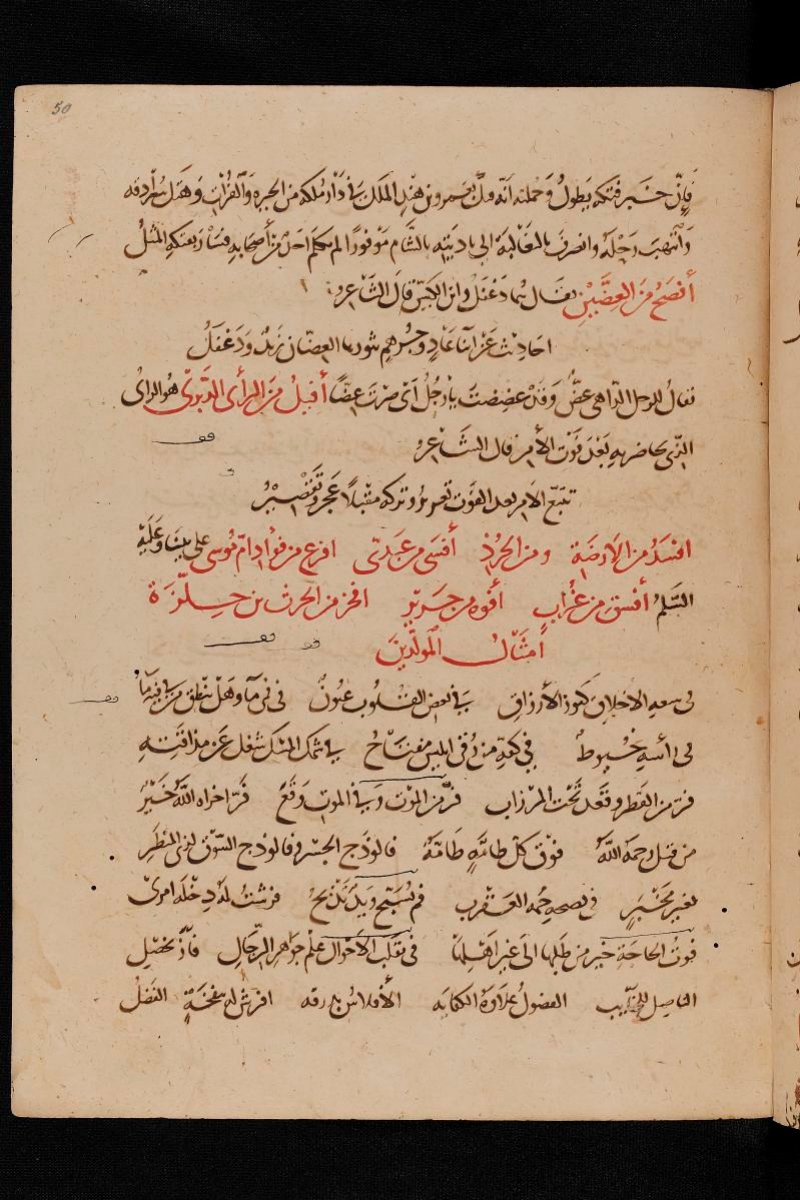 50
فإن خبر فتكه يطول وجملته أنه قتل عمرو بن هند الملك في دار ملكه من الحيرة والفرات وهتك سرادقه
وانتهب رحله وانصرف بالتغالبة إلى باديته بالشام موفورا لم يكلم احد من أصحابه فسار بفتكه المثل
أفصح من العضين يقال هما دغفل وابن الكيس قال الشاعر
احاديث عن ابنا عاد وجرهم يثورها العضان زيد ودغفل
يقال للرجل الداهي عض وقد عضضت يا رجل اي صرت عضا أفيل من الرأى الدبرى هو الراى
الذي يحاضر به بعد فوت الأمر قال الشاعر
تتبع الامر بعد الفوت تغرير وتركه مقبلا عجز وتقصير
افسد من الارضة ومن الجرذ أفسى من عبدى افرغ من فؤاد ام موسى على نبينا وعليه
السلم أفسق من غراب أفوه من جرير افخر من الحرث بن حلزة
أمثال المولدين
في سعة الاخلاق كنوز الأرزاق في بعض القلوب عيون في فى ماء وهل ينطق من في فيه ماء
في رأسه خيوط في كفه من رقى ابليس مفتاح في شمك المسك شغل عن مذاقته
فر من القطر وقعد تحت المرزاب فر من الموت وفي الموت وقع فر اخزاه الله خير
من قتل رحمه الله فوق كل طامة طامة فالوذج الجسر وفالوذج السوق لذى المنظر
لغير مخبر في نصحه حمة العقرب فم يسبح ويد تذبح فرشت له دخلة امرى
فوت الحاجة خير من طلبها الى غير اهلها في تقلب الاحوال علم جواهر الرجال
الفضول علاوة الكفاية الأفلاس بدرقه الفضل